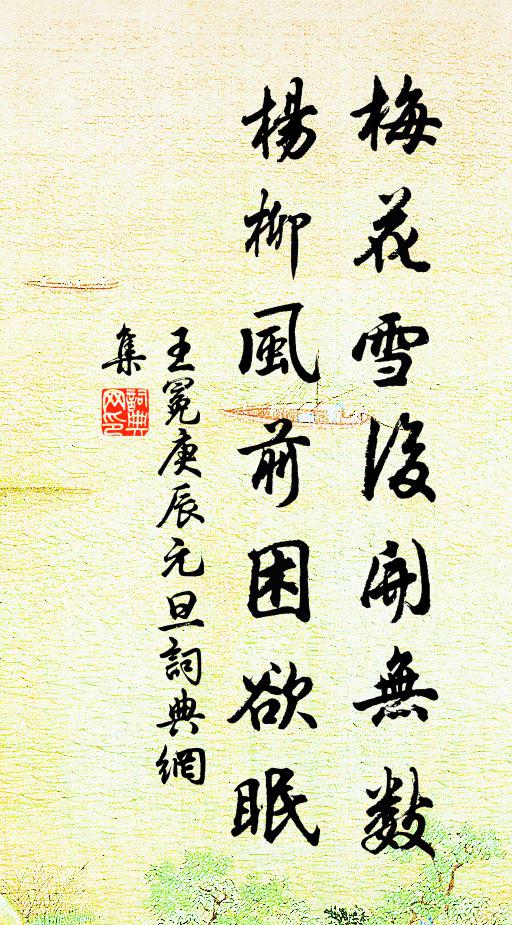 梅花雪後開無數
楊柳風前困欲眠
王冕庚辰元旦詞典網
集
詞典網印